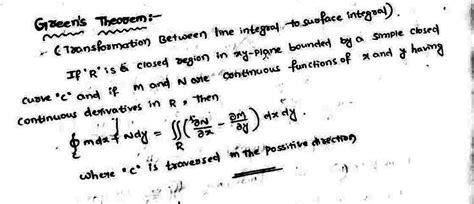 Green's Theorem:-
(Transformation Between line integral to surface integral).
If 'R' is a closed region in xy-plane bounded by a simple closed
curve "C" and if M and N are continuous functions of x and y having
continuous derivatives in R, Then
∮_C mdx + Ndy = ∬_R (∂N/∂x - ∂M/∂y) dx dy.
where "C" is traversed in the possitive direction